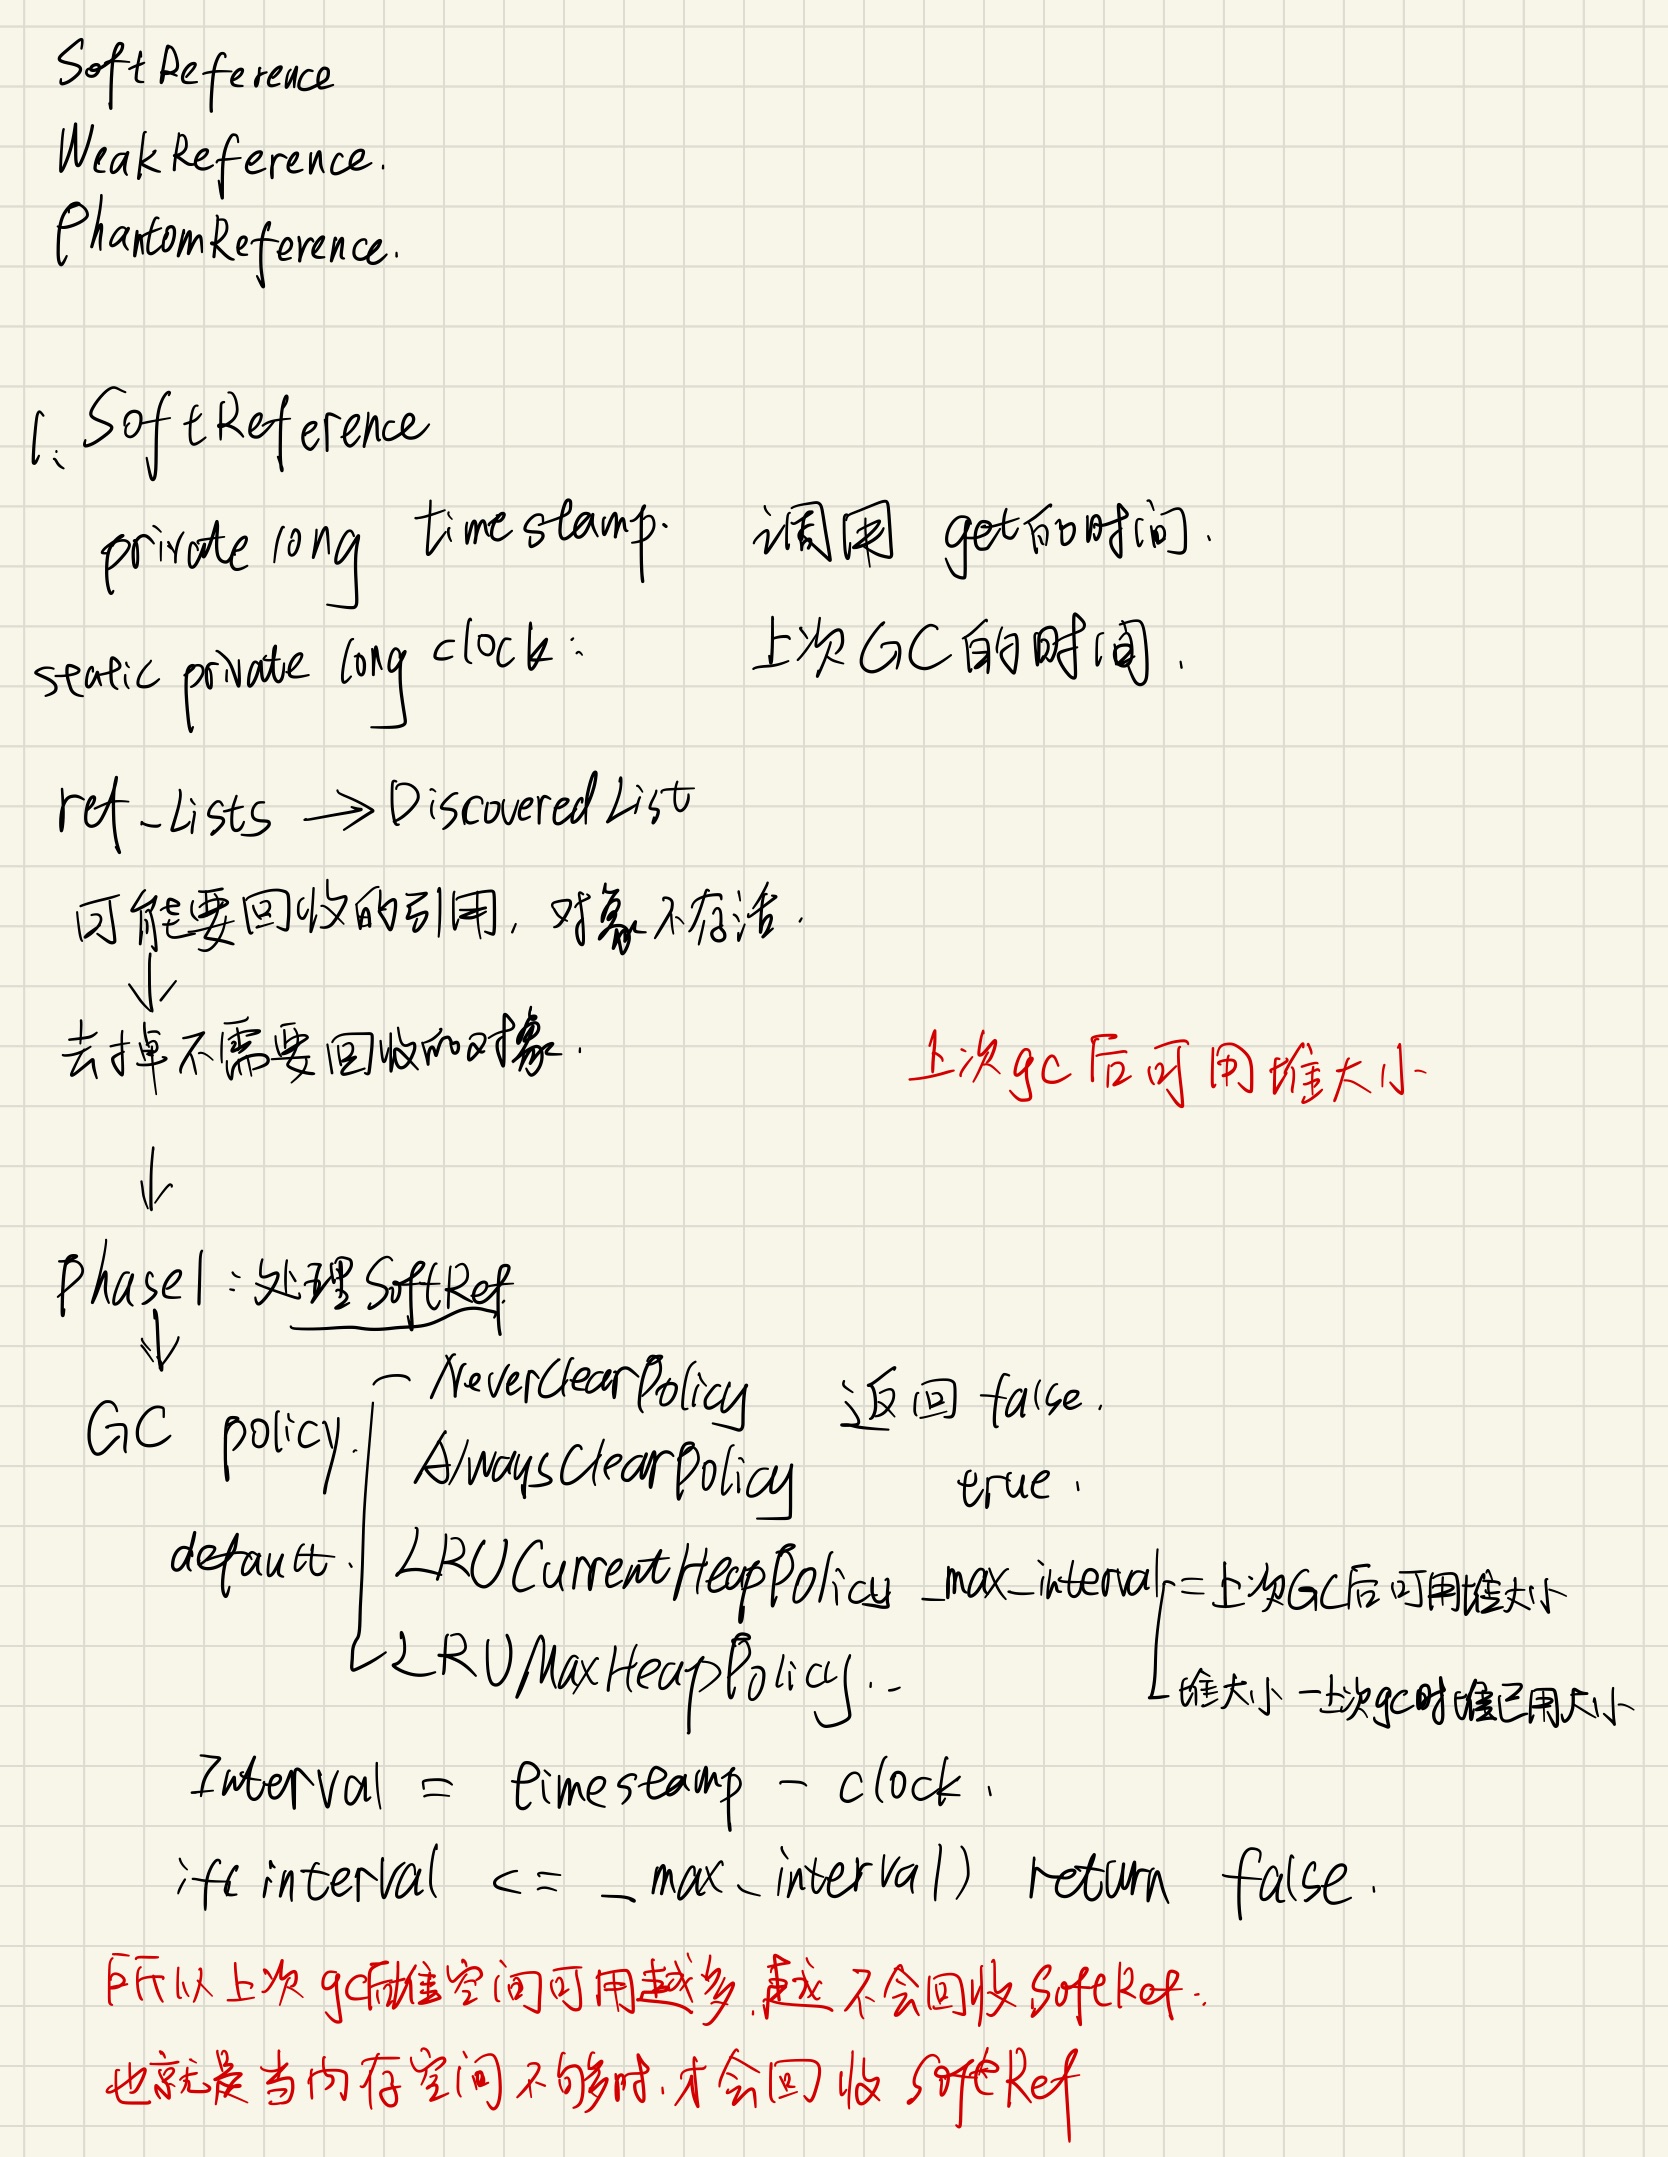 SoftReference
WeakReference.
PhantomReference.
1. SoftReference
private long timestamp. 调用 get的时间.
static private long clock: 上次GC的时间.
ref_Lists → DiscoveredList
可能要回收的引用, 对象不存活.
↓
去掉不需要回收的对象.
上次gc后可用堆大小
↓
Phase1: 处理SoftRef
↓
GC policy. NeverClearPolicy 返回 false.
AlwaysClearPolicy true.
default. LRUCurrentHeapPolicy _max_interval = 上次GC后可用堆大小
LRUMaxHeapPolicy.. 堆大小 - 上次gc时堆已用大小
Interval = timestamp - clock.
if( interval <= _max_interval) return false.
所以上次gc后堆空间可用越多,越不会回收SoftRef.
也就是当内存空间不够多时,才会回收 SoftRef